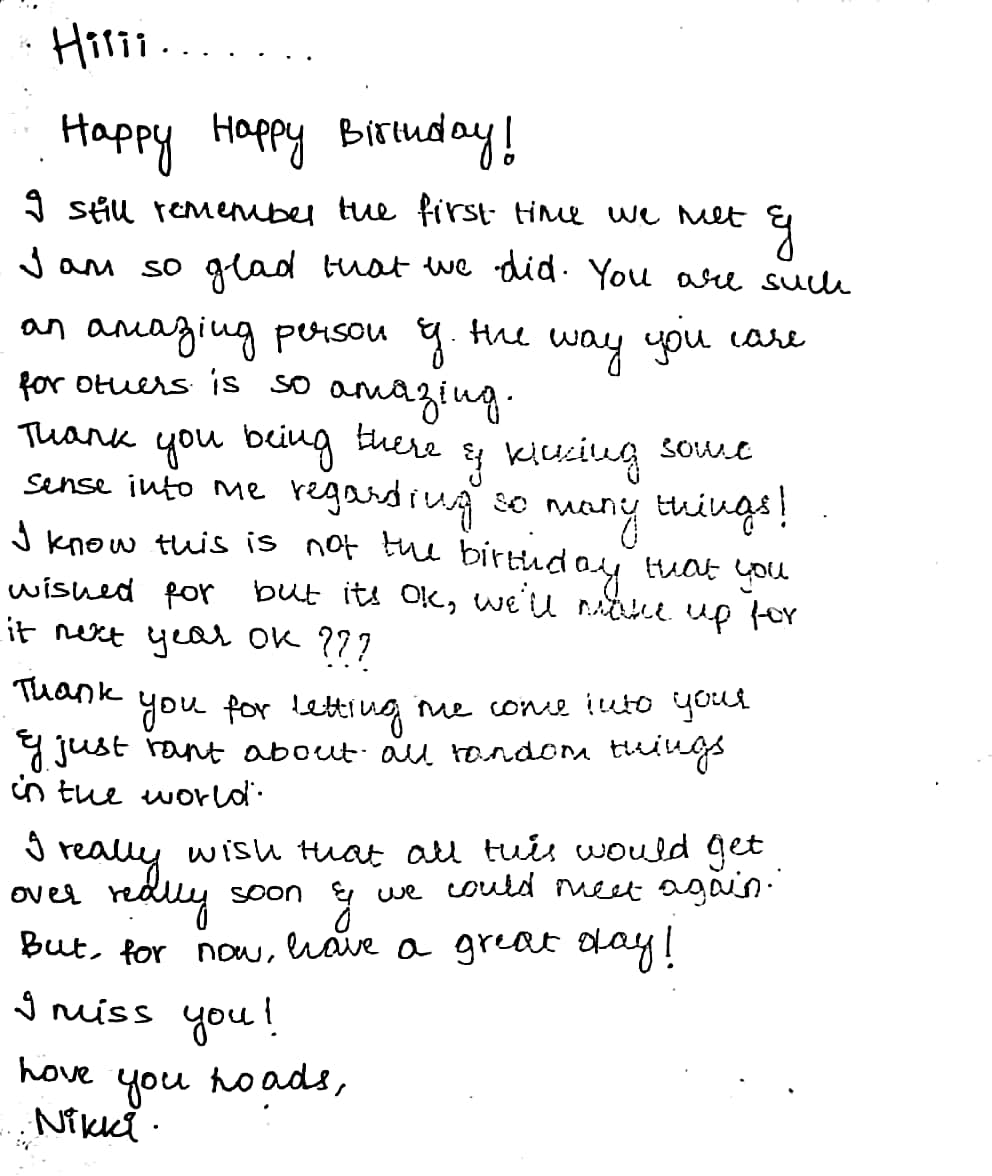 Hiiii.......
Happy Happy Birthday!
I still remember the first time we met &
I am so glad that we did. You are such
an amazing person & the way you care
for others is so amazing.
Thank you being there & kicking some
sense into me regarding so many things!
I know this is not the birthday that you
wished for but its OK, we'll make up for
it next year OK ???
Thank you for letting me come into your
& just rant about all random things
in the world.
I really wish that all this would get
over really soon & we could meet again.
But, for now, have a great day!
I miss you!
Love you loads,
Nikki.